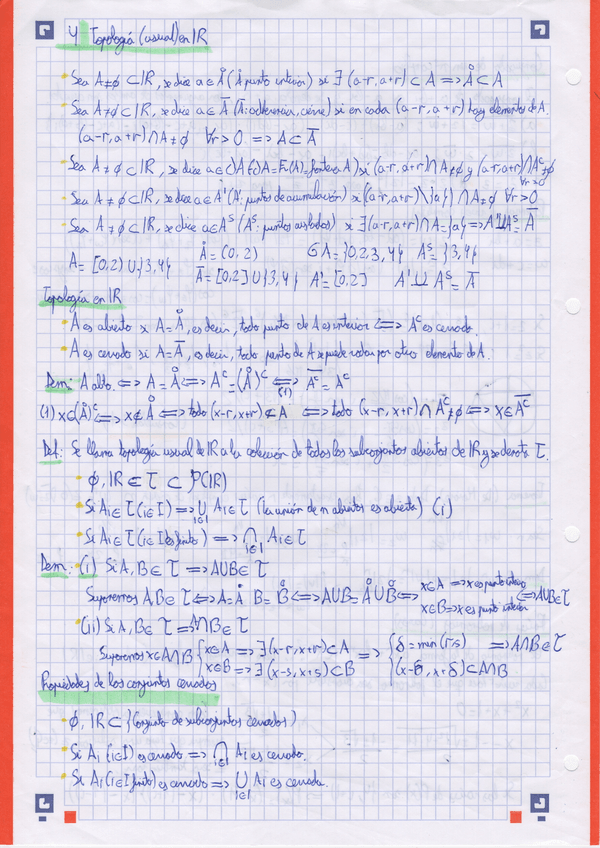 4 Topología (usual) en IR
· Sea A≠∅ ⊂ IR, se dice a∈Å (Å punto interior) si ∃ (a-r, a+r) ⊂ A => Å ⊂ A
· Sea A≠∅ ⊂ IR, se dice a∈Ā (Ā: adherencia, cierre) si en cada (a-r, a+r) hay elementos de A.
(a-r, a+r)∩A≠∅ ∀r>0 => A⊂Ā
· Sea A≠∅ ⊂ IR, se dice a∈∂A (∂A=Fr(A)=frontera A) si (a-r, a+r)∩A≠∅ y (a-r, a+r)∩Aᶜ≠∅ ∀r>0
· Sea A≠∅ ⊂ IR, se dice a∈A' (A': puntos de acumulación) si ((a-r, a+r)\{a})∩A≠∅ ∀r>0
· Sea A≠∅ ⊂ IR, se dice a∈Aˢ (Aˢ: puntos aislados) si ∃(a-r, a+r)∩A={a} => A'⊔Aˢ=Ā
A=[0,2)∪{3,4} Å=(0,2) ∂A={0,2,3,4} Aˢ={3,4}
Ā=[0,2]∪{3,4} A'=[0,2] A'⊔Aˢ=Ā
Topología en IR
· A es abierto si A=Å, es decir, todo punto de A es interior <=> Aᶜ es cerrado.
· A es cerrado si A=Ā, es decir, todo punto de A se puede rodear por otro elemento de A.
Dem: A abto. <=> A=Å <=> Aᶜ=(Å)ᶜ <=>(1) Aᶜ̅=Aᶜ
(1) x∈(Å)ᶜ <=> x∉Å <=> todo (x-r, x+r)⊄A <=> todo (x-r, x+r)∩Aᶜ≠∅ <=> x∈Aᶜ̅
Def: Se llama topología usual de IR a la colección de todos los subconjuntos abiertos de IR y se denota τ.
· ∅, IR ∈ τ ⊂ P(IR)
· Si Aᵢ∈τ (i∈I) => ∪ᵢ∈I Aᵢ∈τ (la unión de n abiertos es abierta) (i)
· Si Aᵢ∈τ (i∈I es finito) => ∩ᵢ∈I Aᵢ∈τ
Dem: · (i) Si A, B∈τ => A∪B∈τ
Suponemos A,B∈τ <=> A=Å B=B̊ <=> A∪B=Å∪B̊ <=> x∈A => x es punto interior x∈B => x es punto interior <=> A∪B∈τ
· (ii) Si A, B∈τ => A∩B∈τ
Suponemos x∈A∩B { x∈A => ∃(x-r, x+r)⊂A x∈B => ∃(x-s, x+s)⊂B => { δ=min(r,s) (x-δ, x+δ)⊂A∩B => A∩B∈τ
Propiedades de los conjuntos cerrados
· ∅, IR ⊂ {Conjunto de subconjuntos cerrados}
· Si Aᵢ (i∈I) es cerrado => ∩ᵢ∈I Aᵢ es cerrado.
· Si Aᵢ (i∈I finito) es cerrado => ∪ᵢ∈I Aᵢ es cerrado.